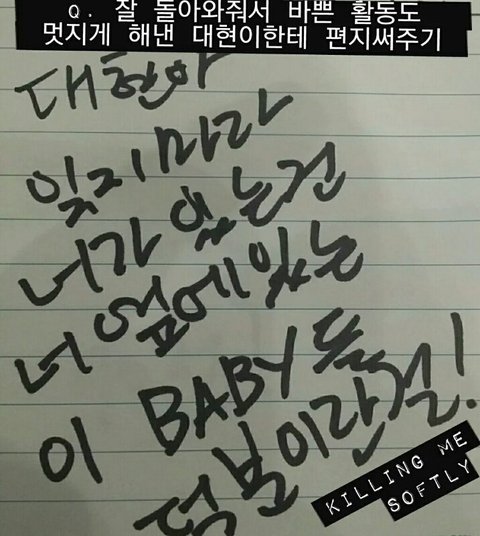 Q. 잘 돌아와줘서 바쁜 활동도
멋지게 해낸 대현이한테 편지써주기
대현아
잊지마라
너가 있는건
너 옆에있는
이 BABY들
덕분이란걸!
KILLING ME
SOFTLY